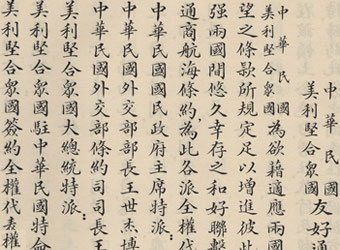 中華民國
美利堅合衆國
友好通
中華民國
美利堅合衆國
為欲藉適應兩國
望之條款所規定足以增進彼此
强兩國間悠久幸存之和好聯繫
通商航海條約,為此各派全權代
中華民國國民政府主席特派:
中華民國外交部部長王世杰博
中華民國外交部條約司司長王
美利堅合衆國大總統特派:
美利堅合衆國駐中華民國特命
美利堅合衆國簽約全權代表權